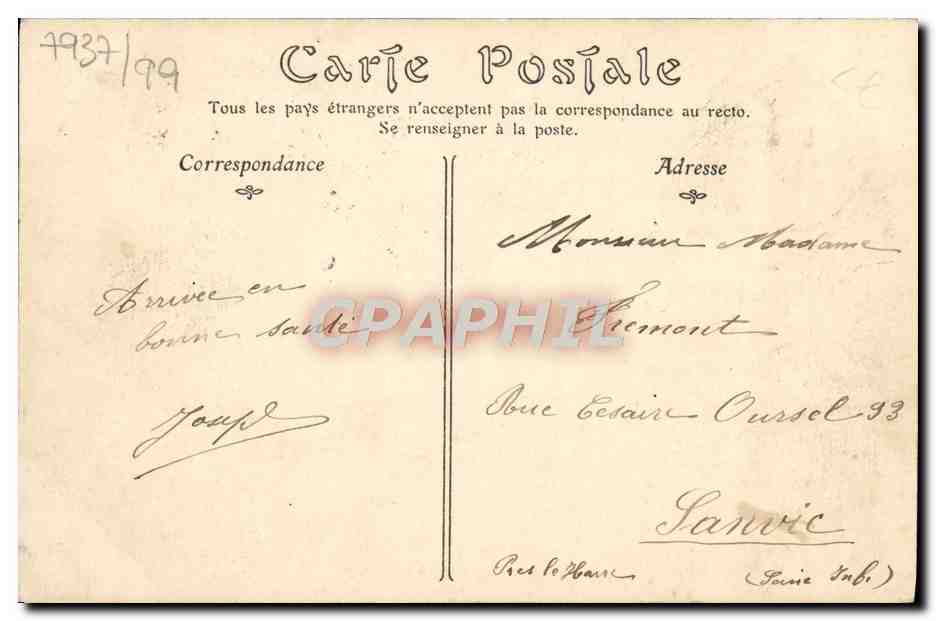 7937/99
Carte Postale
Tous les pays étrangers n'acceptent pas la correspondance au recto.
Se renseigner à la poste.
Correspondance
Arrivee en
bonne santé
Joseph
Adresse
Monsieur Madame
Fremont
Rue Cesaire Oursel 93
Sanvic
Pres le Havre
(Seine Inf.)
CPAPHIL